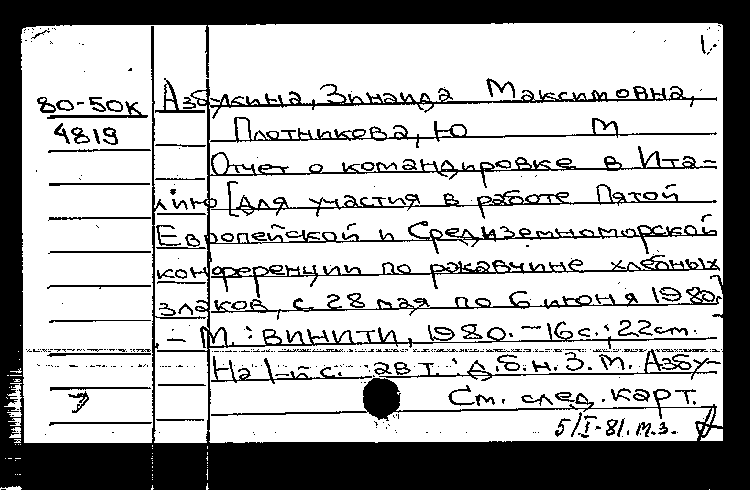 80-50к Азбукина, Зинаида Максимовна,
4819 Плотникова, Ю М
Отчет о командировке в Ита=
лию [для участия в работе Пятой
Европейской и Средиземноморской
конференции по ржавчине хлебных
злаков, с 28 мая по 6 июня 1980]
– М.: ВИНИТИ, 1980. – 16 с.; 22 см.
На 1-й с.: авт.: д.б.н. З.М. Азбу-
См. след. карт.
5/I-81. м.з.